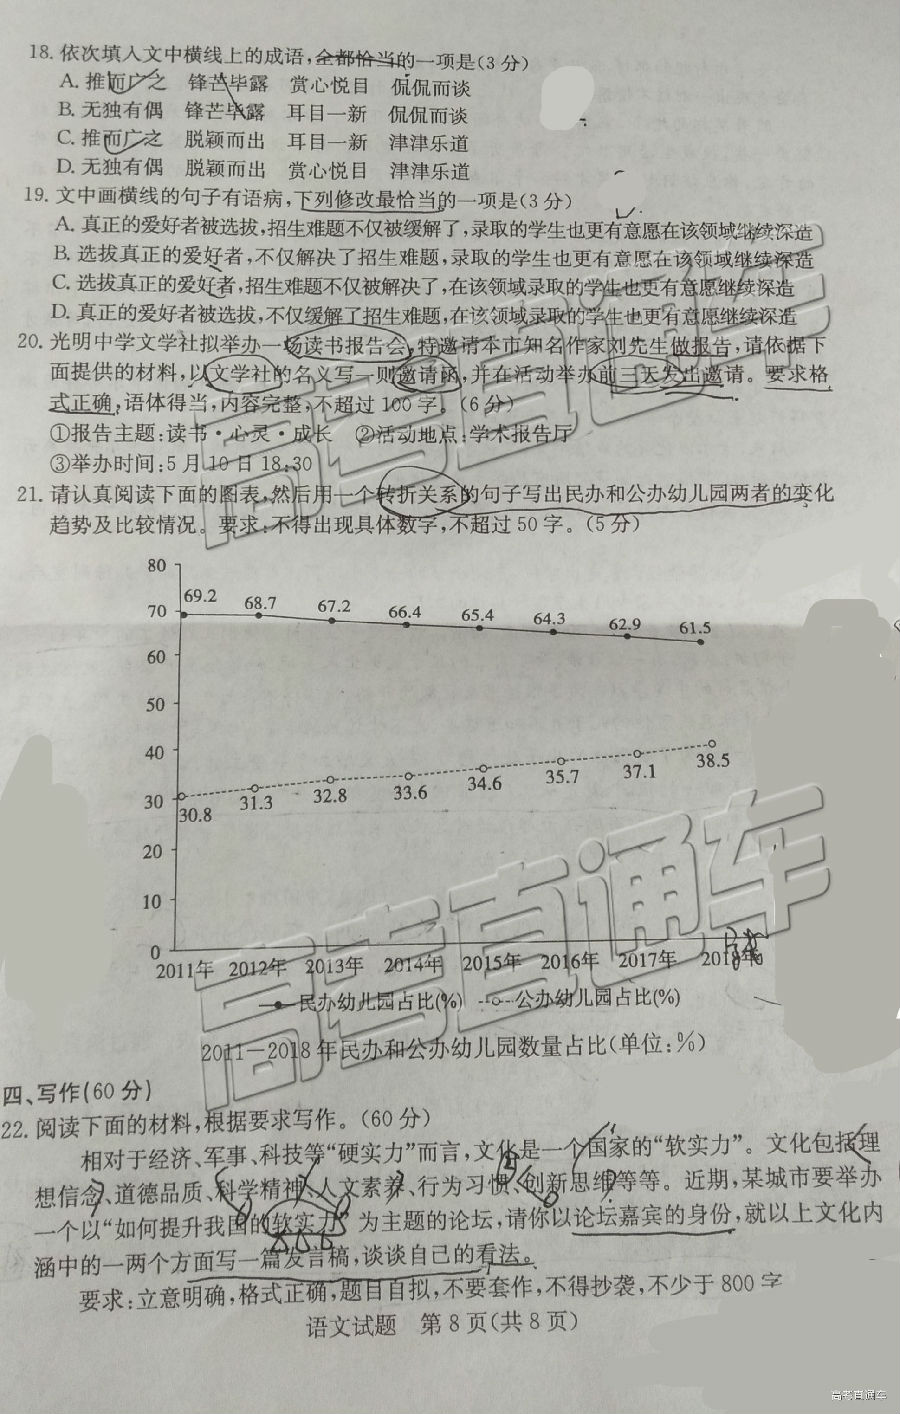 18. 依次填入文中横线上的成语,全都恰当的一项是(3分)
A. 推而广之 锋芒毕露 赏心悦目 侃侃而谈
B. 无独有偶 锋芒毕露 耳目一新 侃侃而谈
C. 推而广之 脱颖而出 耳目一新 津津乐道
D. 无独有偶 脱颖而出 赏心悦目 津津乐道
19. 文中画横线的句子有语病,下列修改最恰当的一项是(3分)
A. 真正的爱好者被选拔,招生难题不仅被缓解了,录取的学生也更有意愿在该领域继续深造
B. 选拔真正的爱好者,不仅解决了招生难题,录取的学生也更有意愿在该领域继续深造
C. 选拔真正的爱好者,招生难题不仅被解决了,在该领域录取的学生也更有意愿继续深造
D. 真正的爱好者被选拔,不仅缓解了招生难题,在该领域录取的学生也更有意愿继续深造
20. 光明中学文学社拟举办一场读书报告会,特邀请本市知名作家刘先生做报告,请依据下
面提供的材料,以文学社的名义写一则邀请函,并在活动举办前三天发出邀请。要求格
式正确,语体得当,内容完整,不超过100字。(6分)
①报告主题:读书·心灵·成长 ②活动地点:学术报告厅
③举办时间:5月10日18:30
21. 请认真阅读下面的图表,然后用一个转折关系的句子写出民办和公办幼儿园两者的变化
趋势及比较情况。要求:不得出现具体数字,不超过50字。(5分)
80
70
60
50
40
30
20
10
0
69.2 68.7 67.2 66.4 65.4 64.3 62.9 61.5
30.8 31.3 32.8 33.6 34.6 35.7 37.1 38.5
2011年 2012年 2013年 2014年 2015年 2016年 2017年 2018年
民办幼儿园占比(%) 公办幼儿园占比(%)
2011—2018年民办和公办幼儿园数量占比(单位:%)
四、写作(60分)
22. 阅读下面的材料,根据要求写作。(60分)
相对于经济、军事、科技等“硬实力”而言,文化是一个国家的“软实力”。文化包括理
想信念、道德品质、科学精神、人文素养、行为习惯、创新思维等等。近期,某城市要举办
一个以“如何提升我国的软实力”为主题的论坛,请你以论坛嘉宾的身份,就以上文化内
涵中的一两个方面写一篇发言稿,谈谈自己的看法。
要求:立意明确,格式正确,题目自拟,不要套作,不得抄袭,不少于800字
语文试题 第8页(共8页)
高考直通车
高考直通车
高考直通车